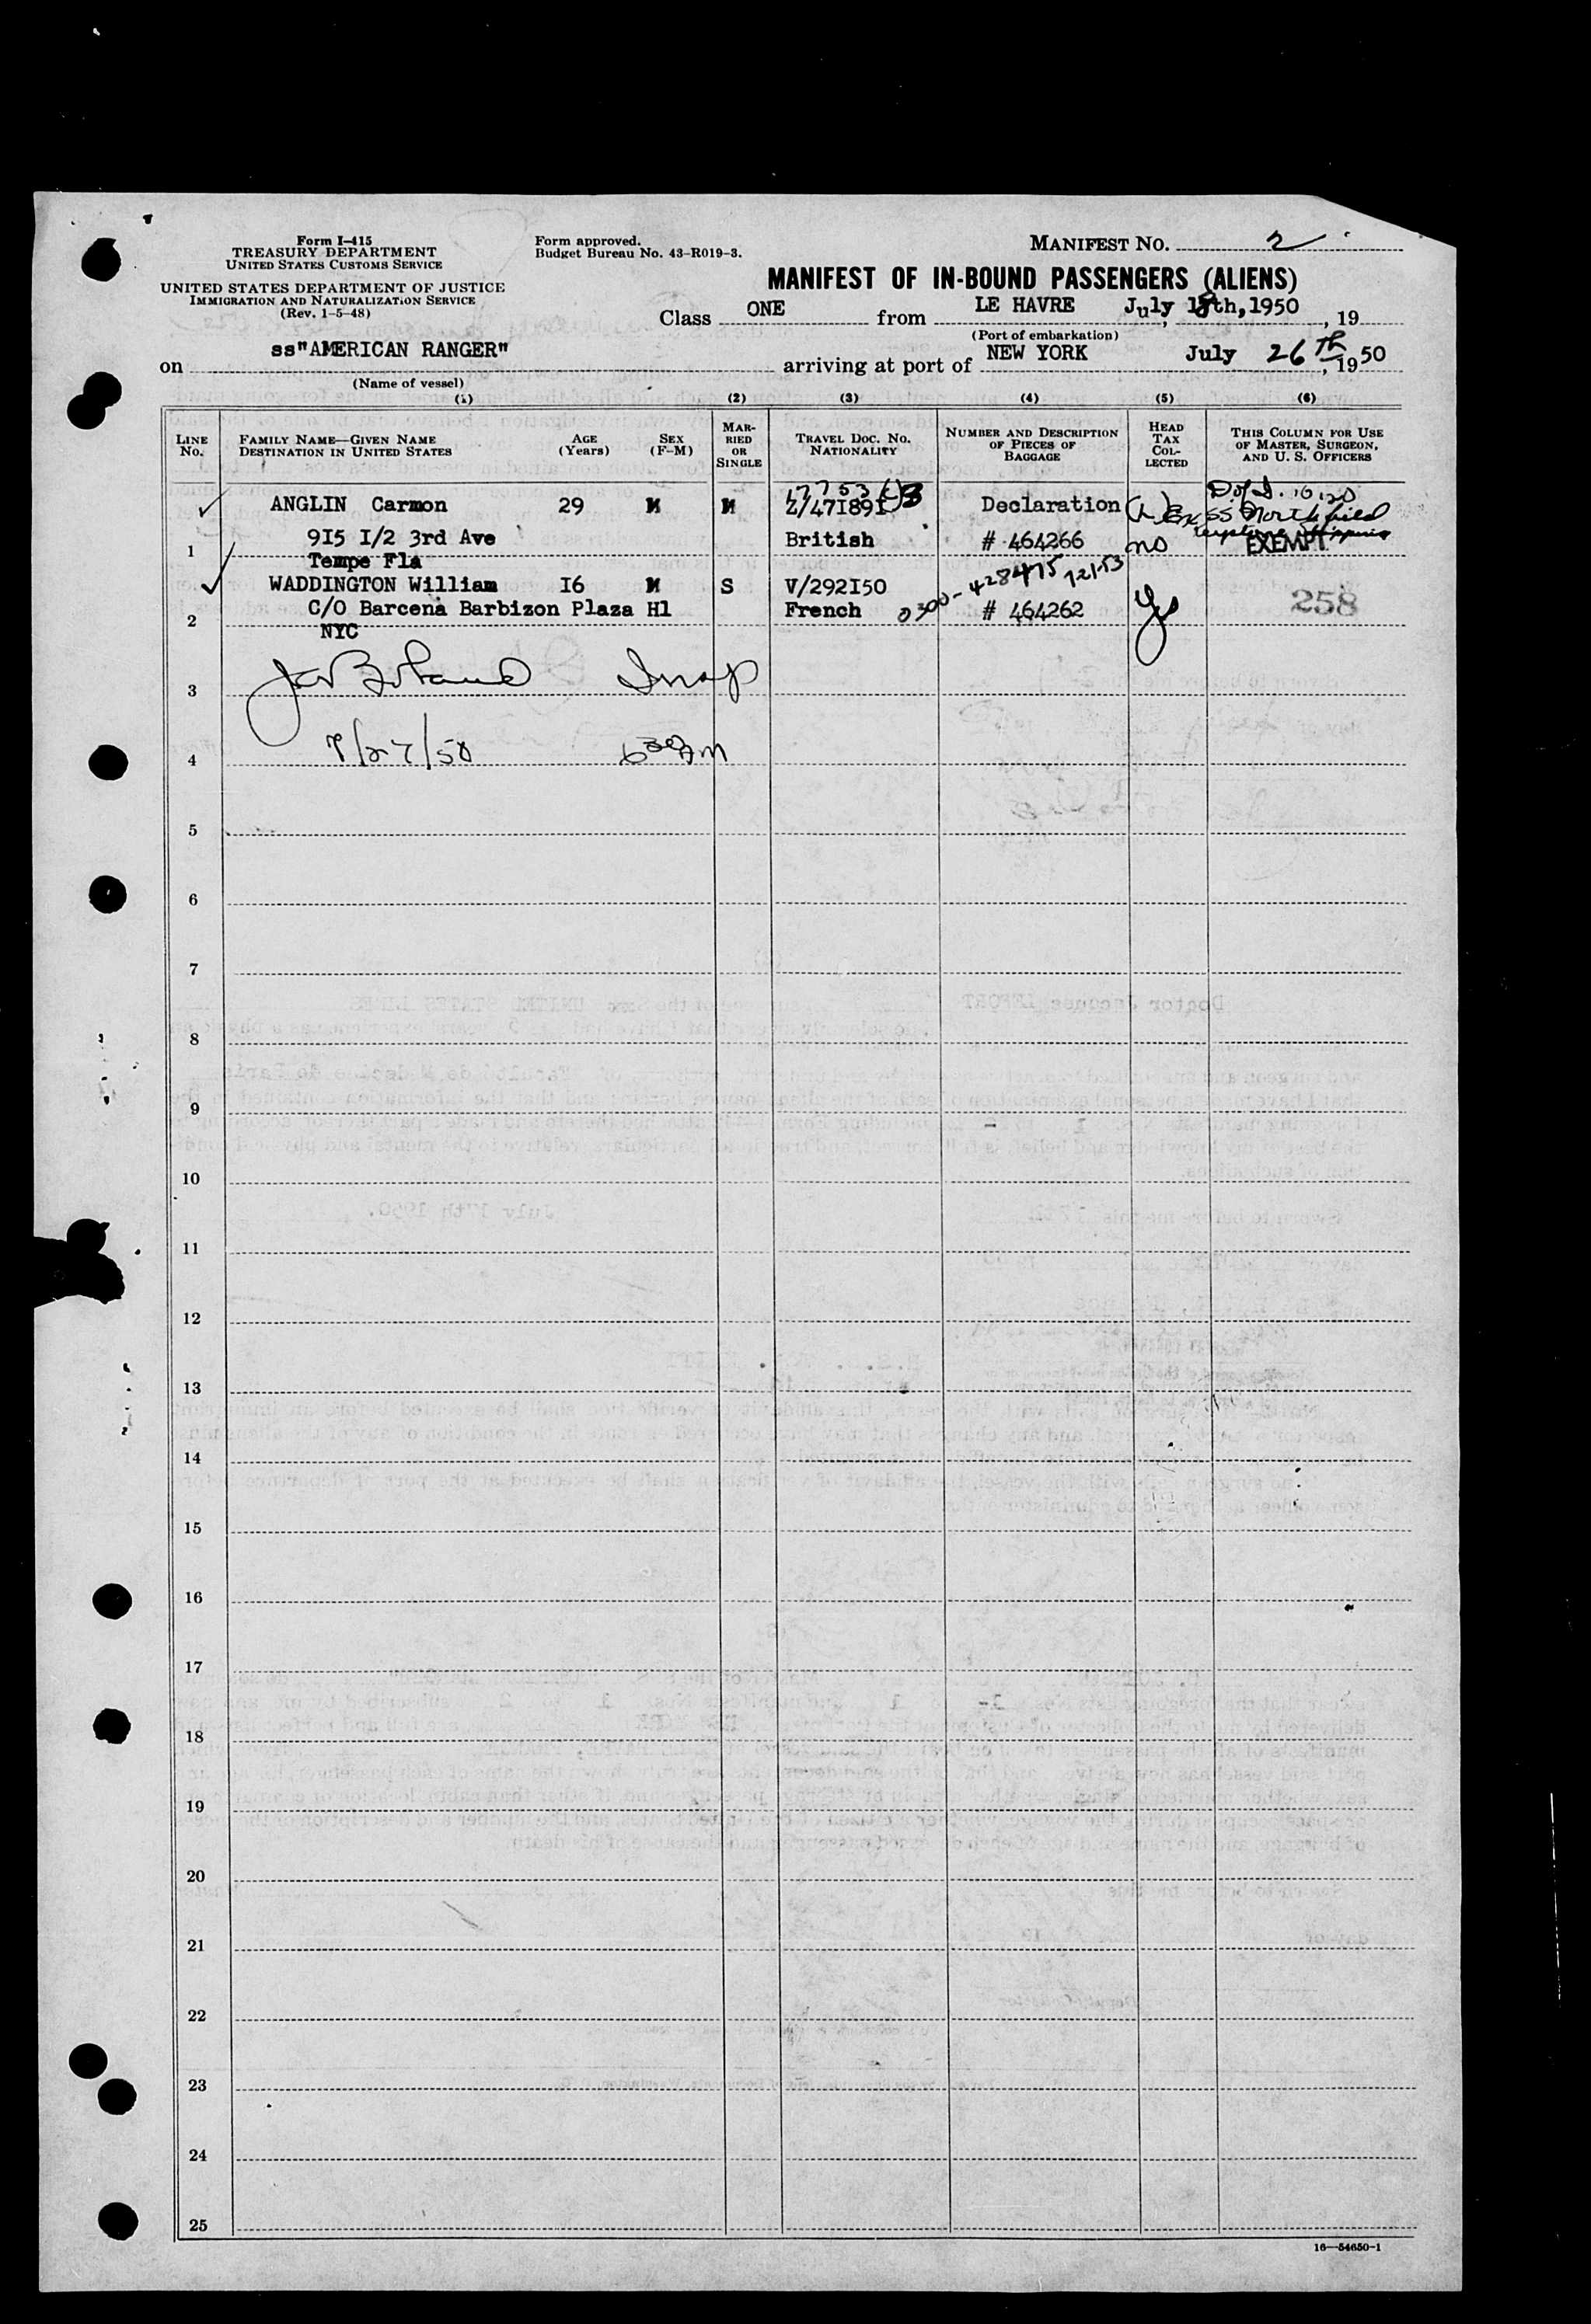 Form I-415
TREASURY DEPARTMENT
UNITED STATES CUSTOMS SERVICE
UNITED STATES DEPARTMENT OF JUSTICE
IMMIGRATION AND NATURALIZATION SERVICE
(Rev. 1-5-48)
Form approved.
Budget Bureau No. 43-R019-3.
MANIFEST NO. 2
MANIFEST OF IN-BOUND PASSENGERS (ALIENS)
Class ONE from LE HAVRE July 18th, 1950, 19
(Port of embarkation)
on ss"AMERICAN RANGER" arriving at port of NEW YORK July 26th, 1950
(Name of vessel)
(1) (2) (3) (4) (5) (6)
LINE No. FAMILY NAME—GIVEN NAME DESTINATION IN UNITED STATES AGE (Years) SEX (F-M) MARRIED OR SINGLE TRAVEL DOC. NO. NATIONALITY NUMBER AND DESCRIPTION OF PIECES OF BAGGAGE HEAD TAX COLLECTED THIS COLUMN FOR USE OF MASTER, SURGEON, AND U. S. OFFICERS
ANGLIN Carmon 29 M M Z/47I89I Declaration
1 9I5 I/2 3rd Ave British # 464266 no EXEMPT
Tempe Fla
WADDINGTON William I6 M S V/292I50 0300-428475 72153
2 C/O Barcena Barbizon Plaza Hl French # 464262 Yes 258
NYC
3 Insp
4 7/27/50 6 30 AM
5
6
7
8
9
10
11
12
13
14
15
16
17
18
19
20
21
22
23
24
25
16—54650-1